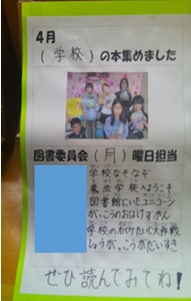 4月
(学校)の本集めました
図書委員会(月)曜日担当
学校なぞなぞ
魔法学校へようこそ
図書館にいたユニコーン
がっこうのおばけずかん
学校のおばけたい大作戦
しょうがっこうがだいすき
ぜひ読んでみてね!